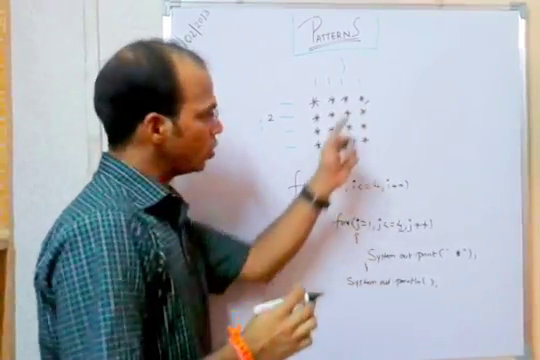 /02/2013
PATTERNS
* * * *
2
* * * *
* * * *
* *
i<=4, i++)
for(j=1, j<=4, j++)
{
System.out.print(" *");
}
System.out.println( );